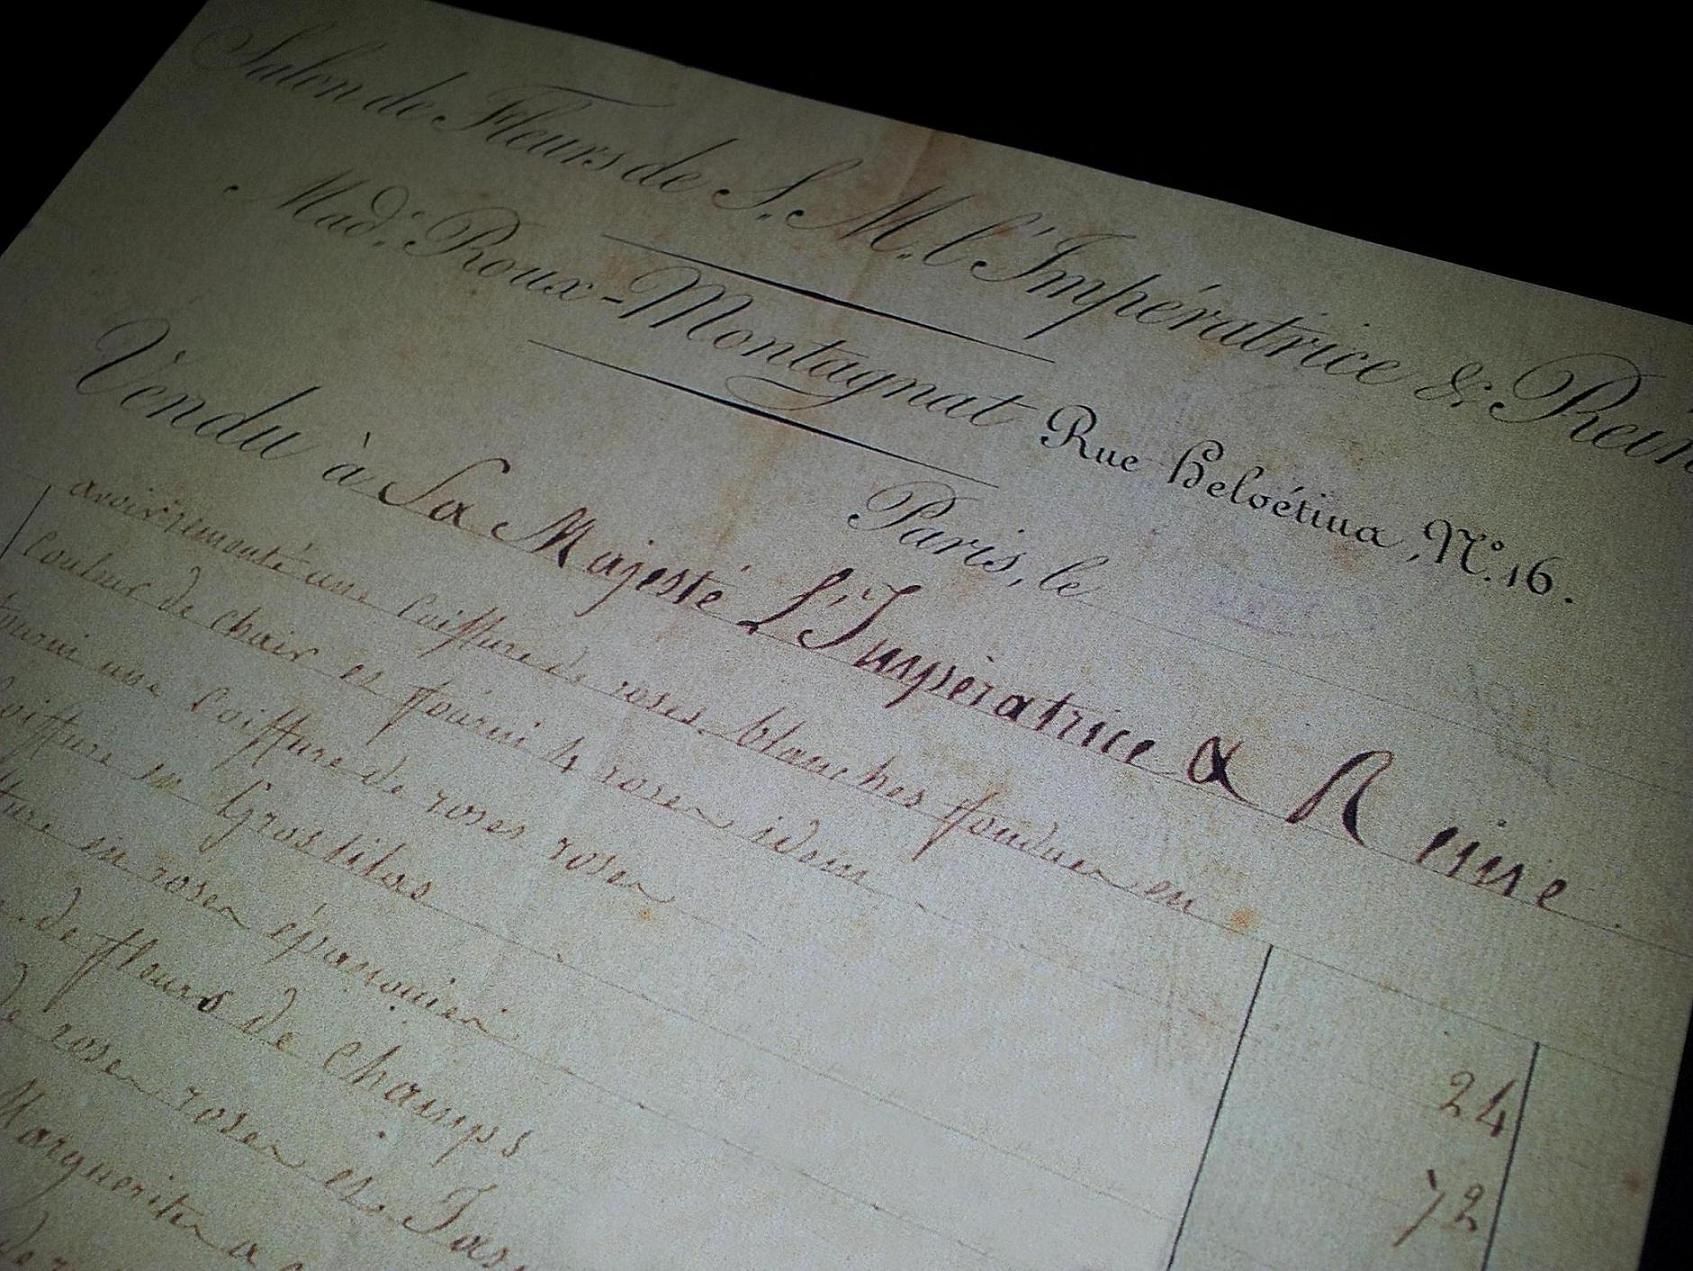 Salon de Fleurs de S. M. l'Impératrice & Rein
Mad.e Roux-Montagnat Rue Helvétius, N.o 16.
Paris, le
Vendu à Sa Majesté L'Impératrice & Reine
avoir remonté une Coiffure de roses blanches fondues en
Couleur de chair et fourni 4 roses idem 24
fourni une Coiffure de roses roses 72
Coiffure en Gros lilas
en roses épanouies
de fleurs de Champs
de roses roses et Jas
Marguerites